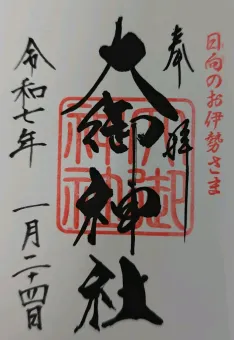 日向のお伊勢さま
奉拝
大御神社
大御神社
令和七年 一月二十四日